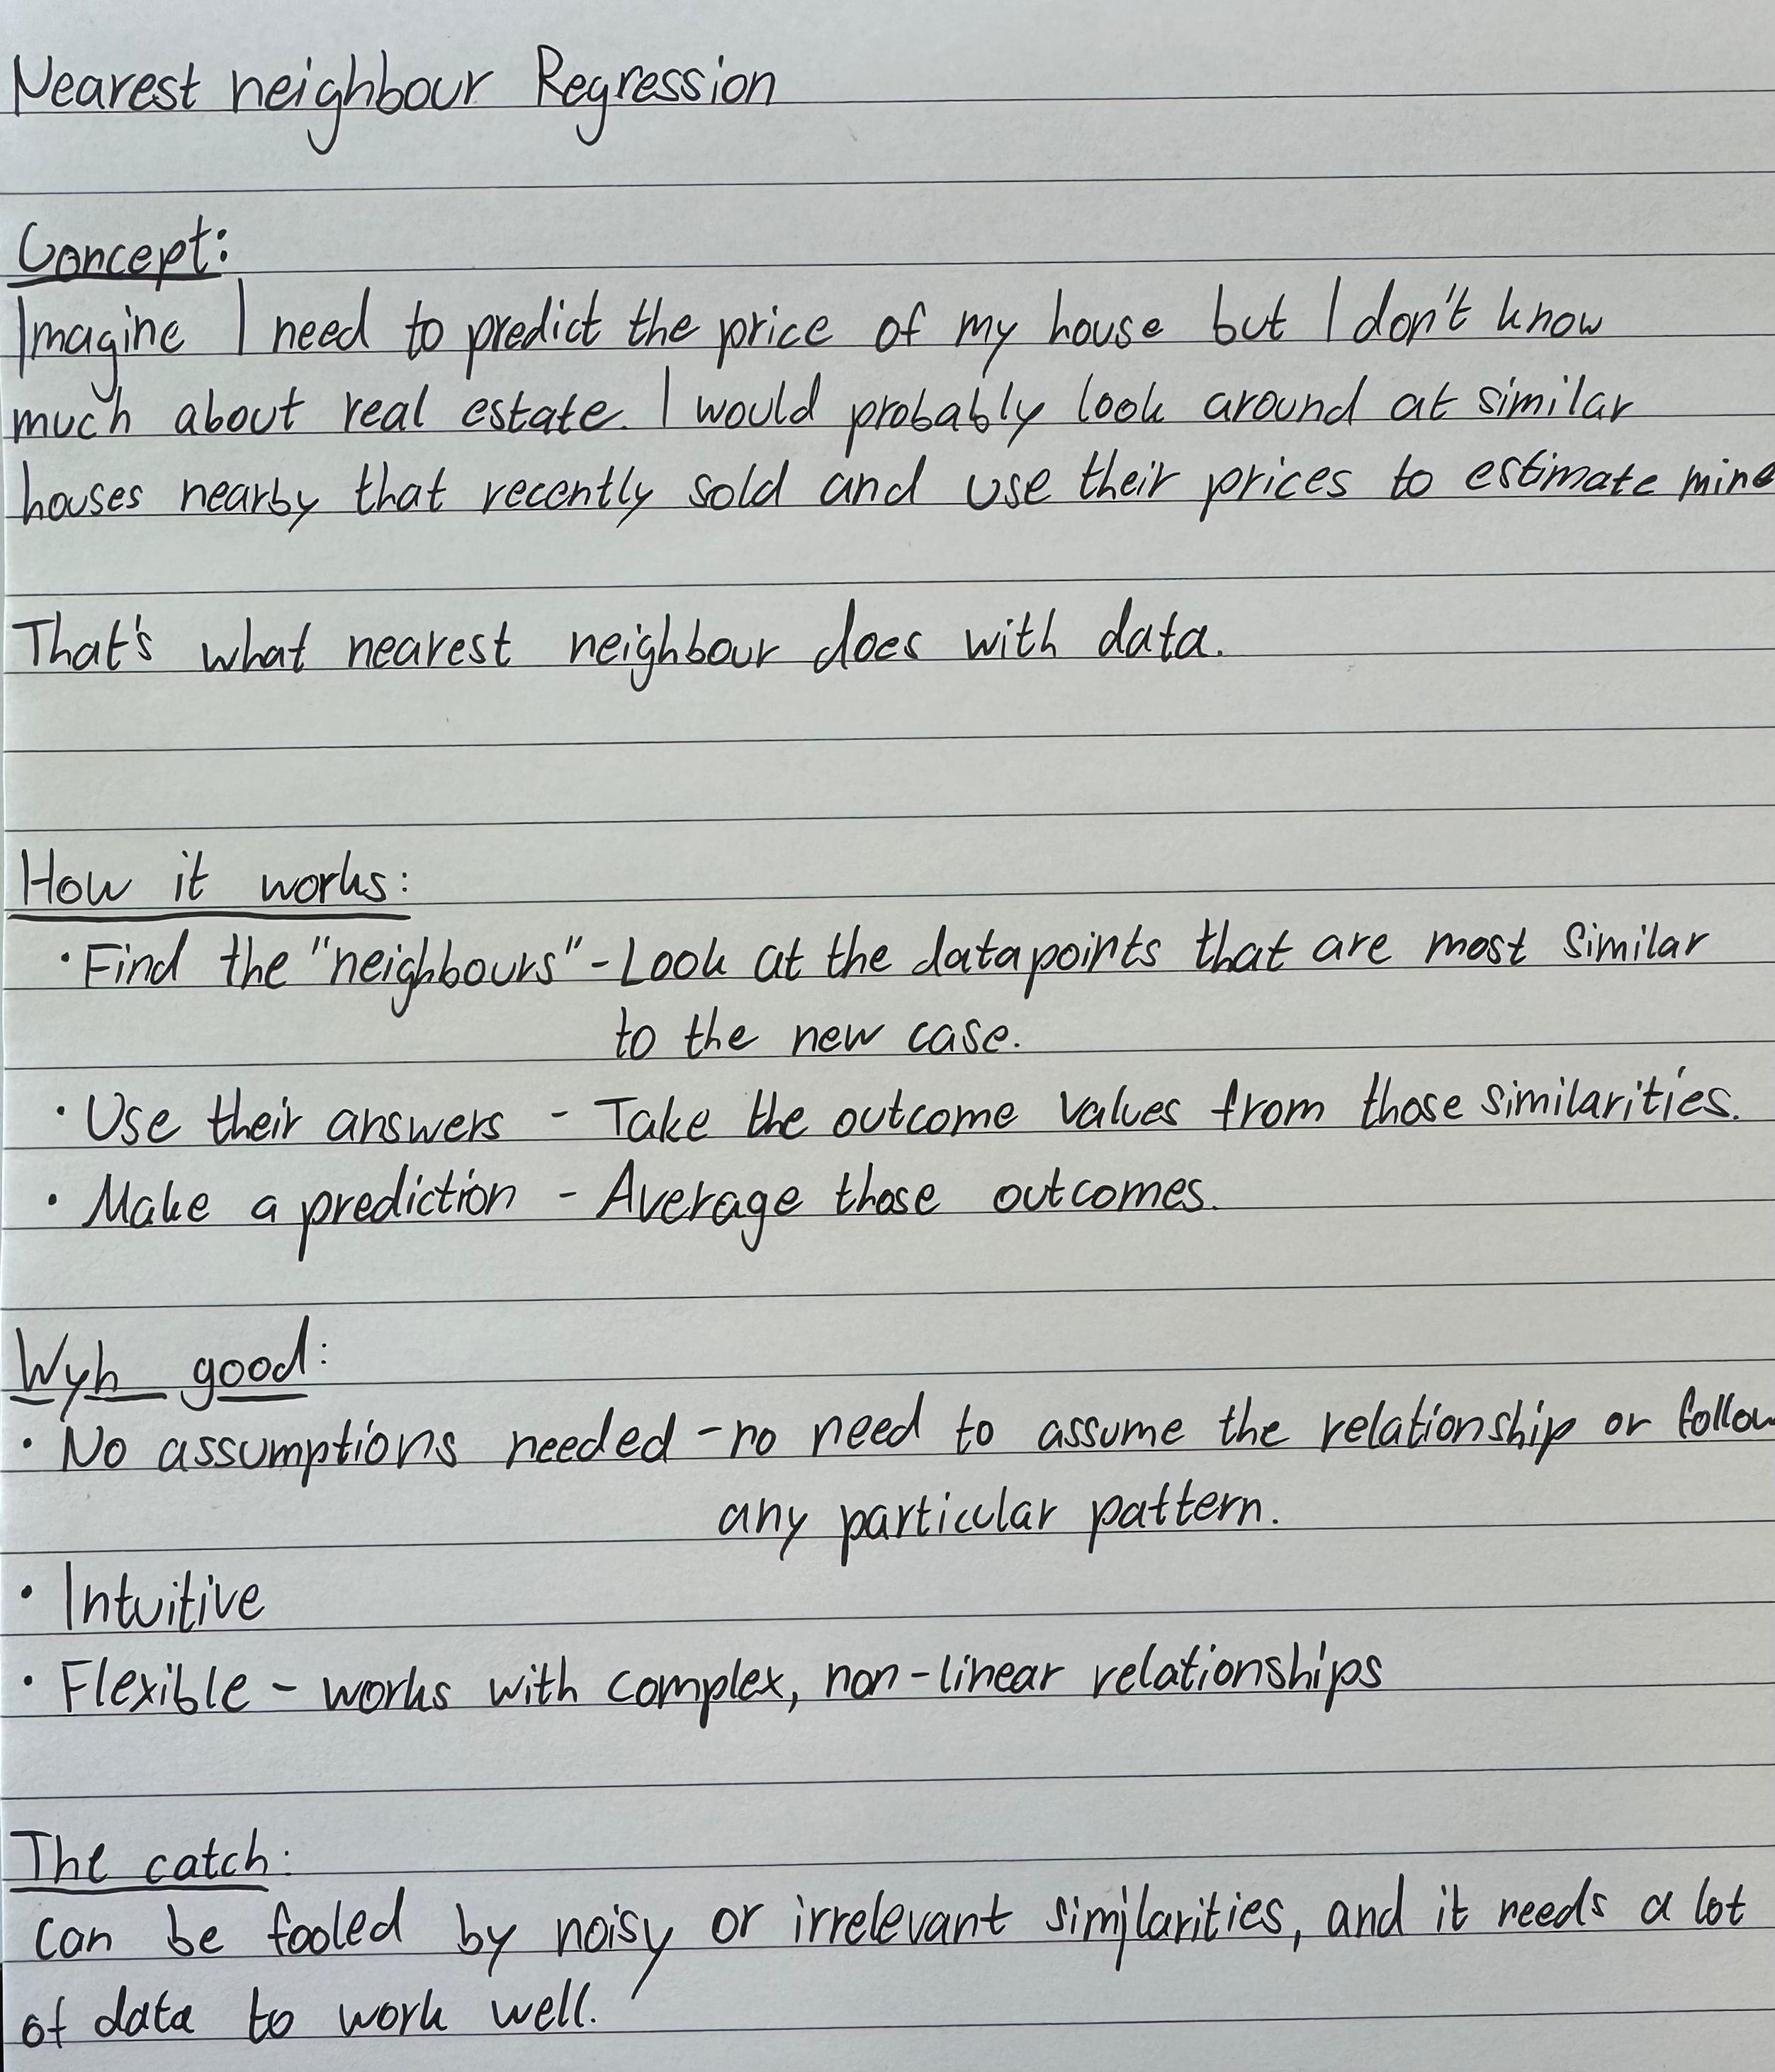 Nearest neighbour Regression
Concept:
Imagine I need to predict the price of my house but I don't know
much about real estate. I would probably look around at similar
houses nearby that recently sold and use their prices to estimate mine
That's what nearest neighbour does with data.
How it works:
• Find the "neighbours" - Look at the datapoints that are most similar
to the new case.
• Use their answers - Take the outcome values from those similarities.
• Make a prediction - Average those outcomes.
Wyh good:
• No assumptions needed - no need to assume the relationship or follow
any particular pattern.
• Intuitive
• Flexible - works with complex, non-linear relationships
The catch:
can be fooled by noisy or irrelevant similarities, and it needs a lot
of data to work well.